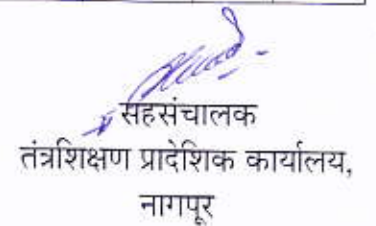 सहसंचालक
तंत्रशिक्षण प्रादेशिक कार्यालय,
नागपूर